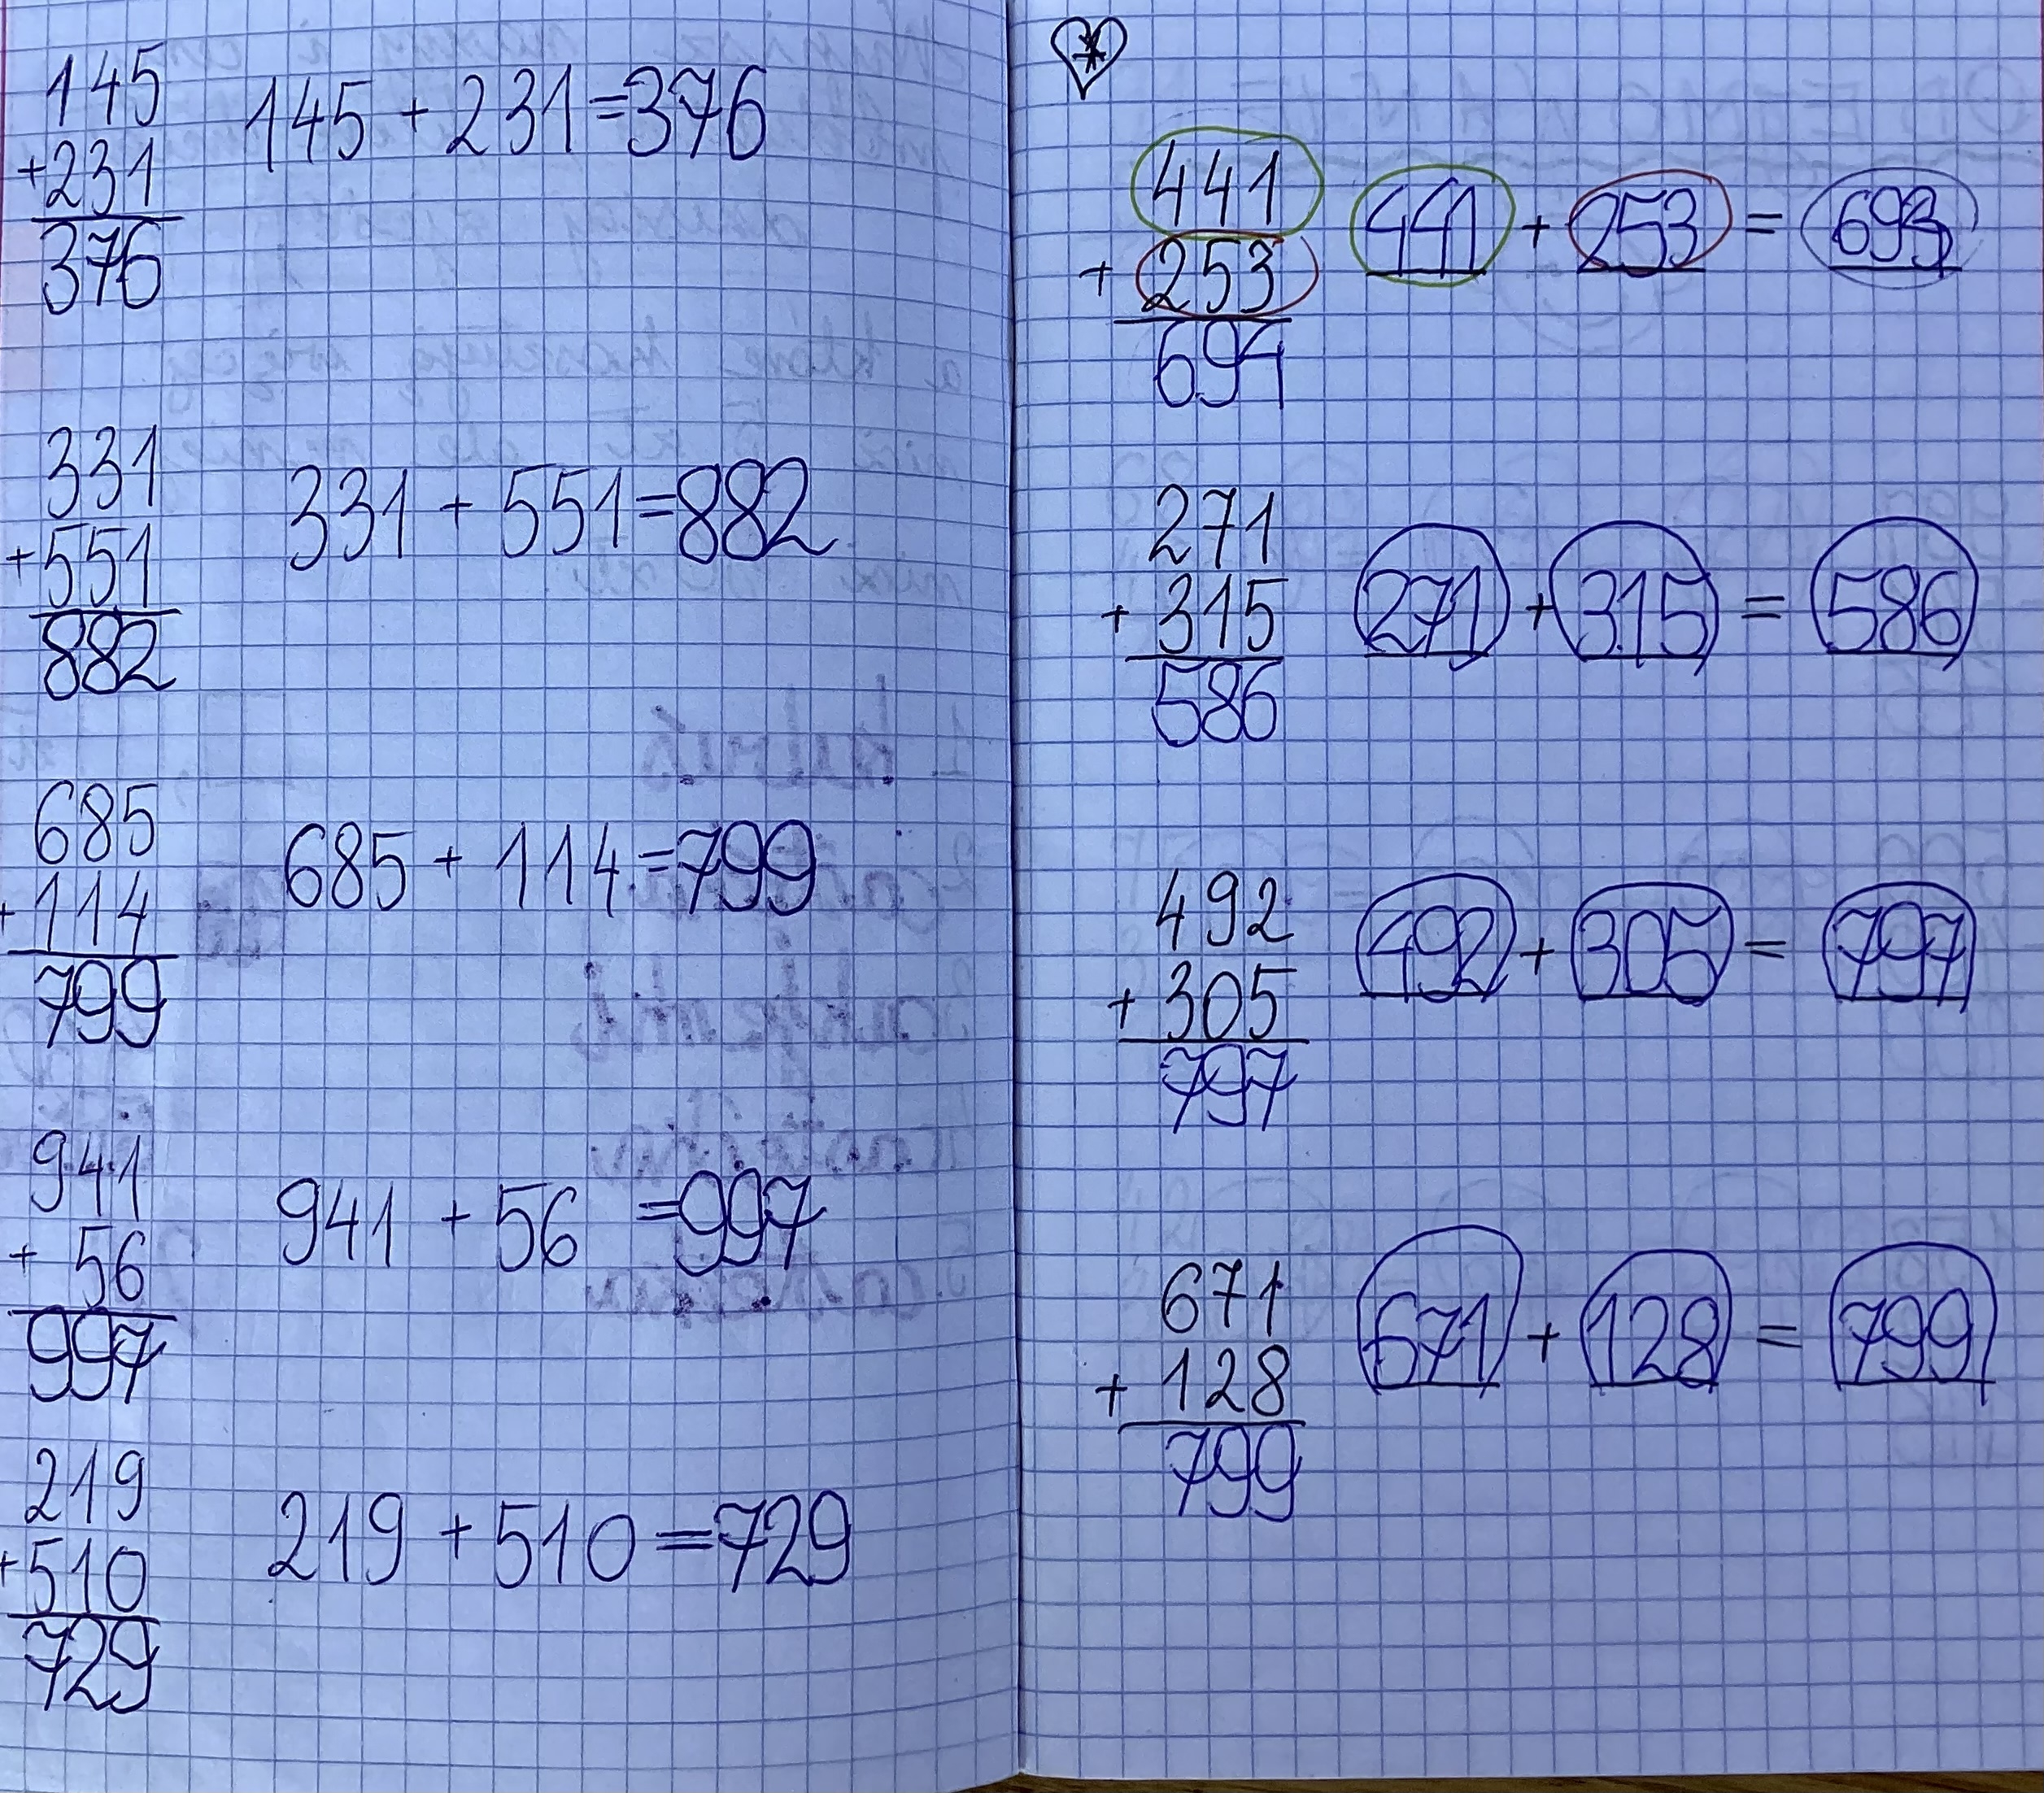 145
+231
376
145 + 231 = 376
331
+551
882
331 + 551 = 882
685
+114
799
685 + 114 = 799
941
+ 56
997
941 + 56 = 997
219
+510
729
219 + 510 = 729
441
+ 253
694
441 + 253 =
271
+ 315
586
271 + 315 = 586
492
+ 305
797
492 + 305 = 797
671
+ 128
799
671 + 128 = 799